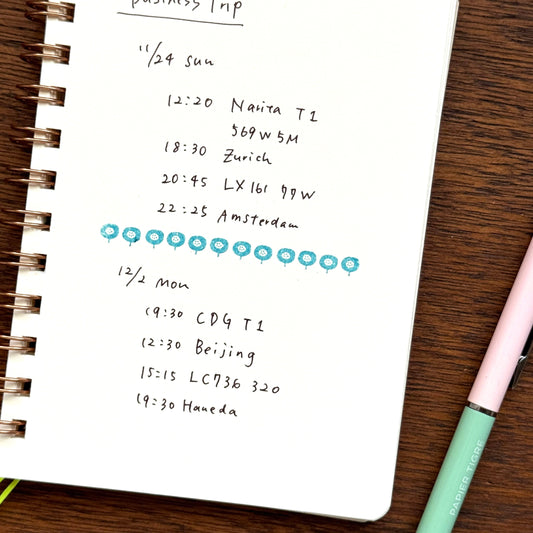 Business Trip
11/24 sun
12:20 Narita T1
569W 5M
18:30 Zurich
20:45 LX161 77W
22:25 Amsterdam
12/2 mon
19:30 CDG T1
12:30 Beijing
15:15 LC736 320
19:30 Haneda
PAPIER TIGRE